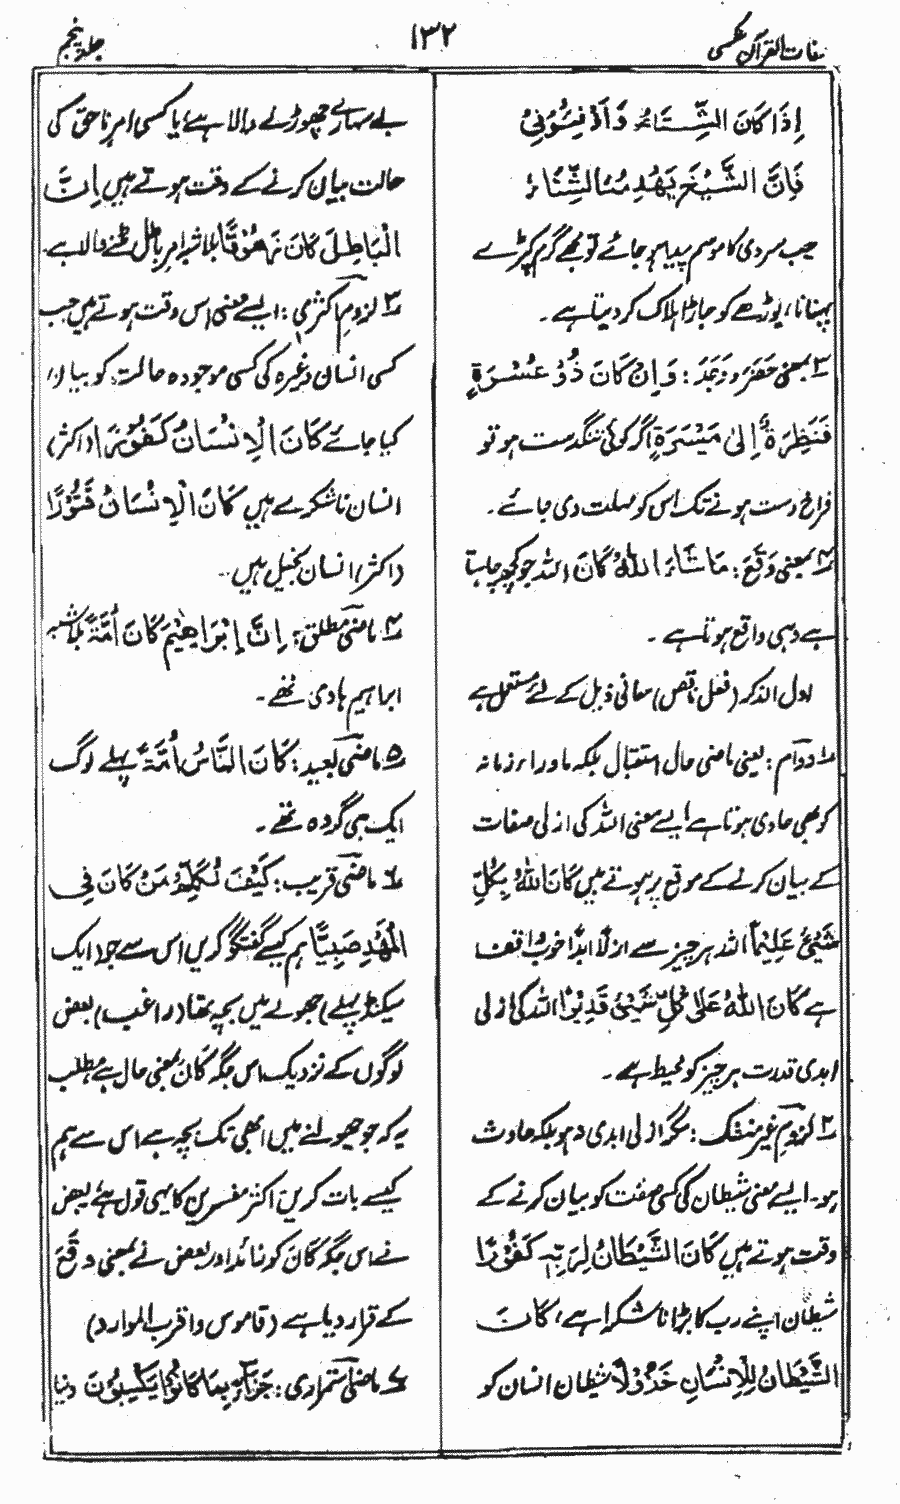 لغات القرآن عکسی
۱۳۲
جلد پنجم
اِذَا كَانَ الشِّتَاءُ فَاَدْفِئُوْنِیْ
فَاِنَّ الشَّیْخَ یَهْدِمُهُ الشِّتَاءُ
جب سردی کا موسم پیدا ہو جائے تو مجھے گرم کپڑے
پہنانا، بوڑھے کو جاڑا ہلاک کر دیتا ہے۔
۳ بمعنی حَضَرَ و وَجَدَ: وَاِنْ كَانَ ذُوْ عُسْرَةٍ
فَنَظِرَةٌ اِلٰی مَیْسَرَةٍ اگر کوئی تنگدست ہو تو
فراخ دست ہونے تک اس کو مہلت دی جائے۔
۴ بمعنی وَقَعَ: مَا شَاءَ اللهُ كَانَ اللہ جو کچھ چاہتا
ہے وہی واقع ہوتا ہے۔
اول الذکر (فعل ناقص) معانی ذیل کے لئے مستعمل ہے
۱ دوام: یعنی ماضی حال استقبال بلکہ ماوراء زمانہ
کو بھی حاوی ہوتا ہے ایسے معنی اللہ کی ازلی صفات
کے بیان کرنے کے موقع پر ہوتے ہیں كَانَ اللهُ بِكُلِّ
شَیْئٍ عَلِیْمًا اللہ ہر چیز سے ازلاً ابداً خوب واقف
ہے كَانَ اللهُ عَلٰی كُلِّ شَیْئٍ قَدِیْرًا اللہ کی ازلی
ابدی قدرت ہر چیز کو محیط ہے۔
۲ لزوم غیر منفک: مگر ازلی ابدی نہ ہو بلکہ حادث
ہو۔ ایسے معنی شیطان کی کسی صفت کو بیان کرنے کے
وقت ہوتے ہیں كَانَ الشَّیْطَانُ لِرَبِّهٖ كَفُوْرًا
شیطان اپنے رب کا بڑا ناشکرا ہے، كَانَ
الشَّیْطَانُ لِلْاِنْسَانِ خَذُوْلًا شیطان انسان کو
بے سہارے چھوڑنے والا ہے، یا کسی امر ناحق کی
حالت بیان کرنے کے وقت ہوتے ہیں اِنَّ
الْبَاطِلَ كَانَ زَهُوْقًا بلاشبہ امر باطل مٹنے والا ہے۔
۳ لزوم اکثری: ایسے معنی اس وقت ہوتے ہیں جب
کسی انسان وغیرہ کی کسی موجودہ حالت کو بیان
کیا جائے كَانَ الْاِنْسَانُ كَفُوْرًا (اکثر)
انسان ناشکرے ہیں كَانَ الْاِنْسَانُ قَتُوْرًا
(اکثر) انسان بخیل ہیں۔
۴ ماضی مطلق: اِنَّ اِبْرَاهِیْمَ كَانَ اُمَّةً بلاشبہ
ابراہیم ہادی تھے۔
۵ ماضی بعید: كَانَ النَّاسُ اُمَّةً پہلے لوگ
ایک ہی گروہ تھے۔
۶ ماضی قریب: كَیْفَ نُكَلِّمُ مَنْ كَانَ فِی
الْمَهْدِ صَبِیًّا ہم کیسے گفتگو کریں اس سے جو ایک
سیکنڈ پہلے) جھولے میں بچہ تھا (راغب) بعض
لوگوں کے نزدیک اس جگہ كَانَ بمعنی حال ہے مطلب
یہ کہ جو جھولنے میں ابھی تک بچہ ہے اس سے ہم
کیسے بات کریں اکثر مفسرین کا یہی قول ہے بعض
نے اس جگہ كَانَ کو زائد اور بعض نے بمعنی وَقَعَ
کے قرار دیا ہے (قاموس و اقرب الموارد)
۷ ماضی استمراری: جَزَاءً بِمَا كَانُوْا یَكْسِبُوْنَ دنیا